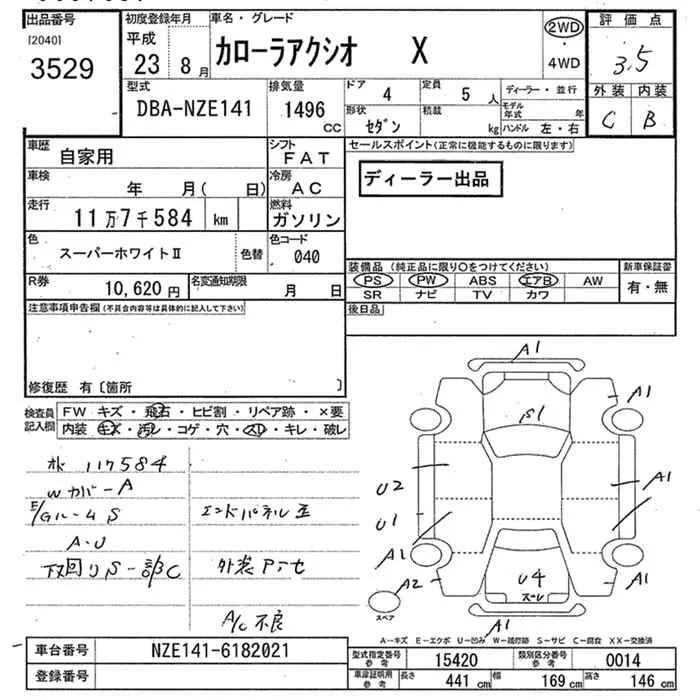 出品番号 初度登録年月 車名・グレード 評価点
[2040] 平成 カローラアクシオ X 2WD
3529 23 8月 ・ 3.5
4WD
型式 排気量 ドア 4 定員 5 人 ディーラー・並行 外装 内装
DBA-NZE141 1496 cc 形状 セダン 積載 kg モデル年式 年 C B
ハンドル 左・右
車歴 自家用 シフト FAT セールスポイント(正常に機能するものに限ります)
車検 年 月( 日) 冷房 AC ディーラー出品
走行 11万7千584 km 燃料 ガソリン
色 スーパーホワイトⅡ 色替 色コード 040
R券 10,620円 名変通知期限 月 日
装備品(純正品に限り○をつけてください) 新車保証書
PS PW ABS エアB AW 有・無
SR ナビ TV カワ
注意事項申告欄(不具合内容等は具体的に記入して下さい) 後日品
修復歴 有〔箇所 〕
検査員記入欄 FW キズ・飛石・ヒビ割・リペア跡・×要
内装 キズ・汚レ・コゲ・穴・スレ・キレ・破レ
117584
Wカバー A
E/Gルーム S エンドパネル歪
A・U
下回りS-部C
A/C 不良
A1
A1
S1
U2 A1
U1
A1
A2 U4 A1
スペア
A1
A-キズ E-エクボ U-凹み W-補修跡 S-サビ C-腐食 XX-交換済
車台番号 NZE141-6182021 型式指定番号 参考 15420 類別区分番号 参考 0014
登録番号 車庫証明用 参考 長さ 441 cm 幅 169 cm 高さ 146 cm